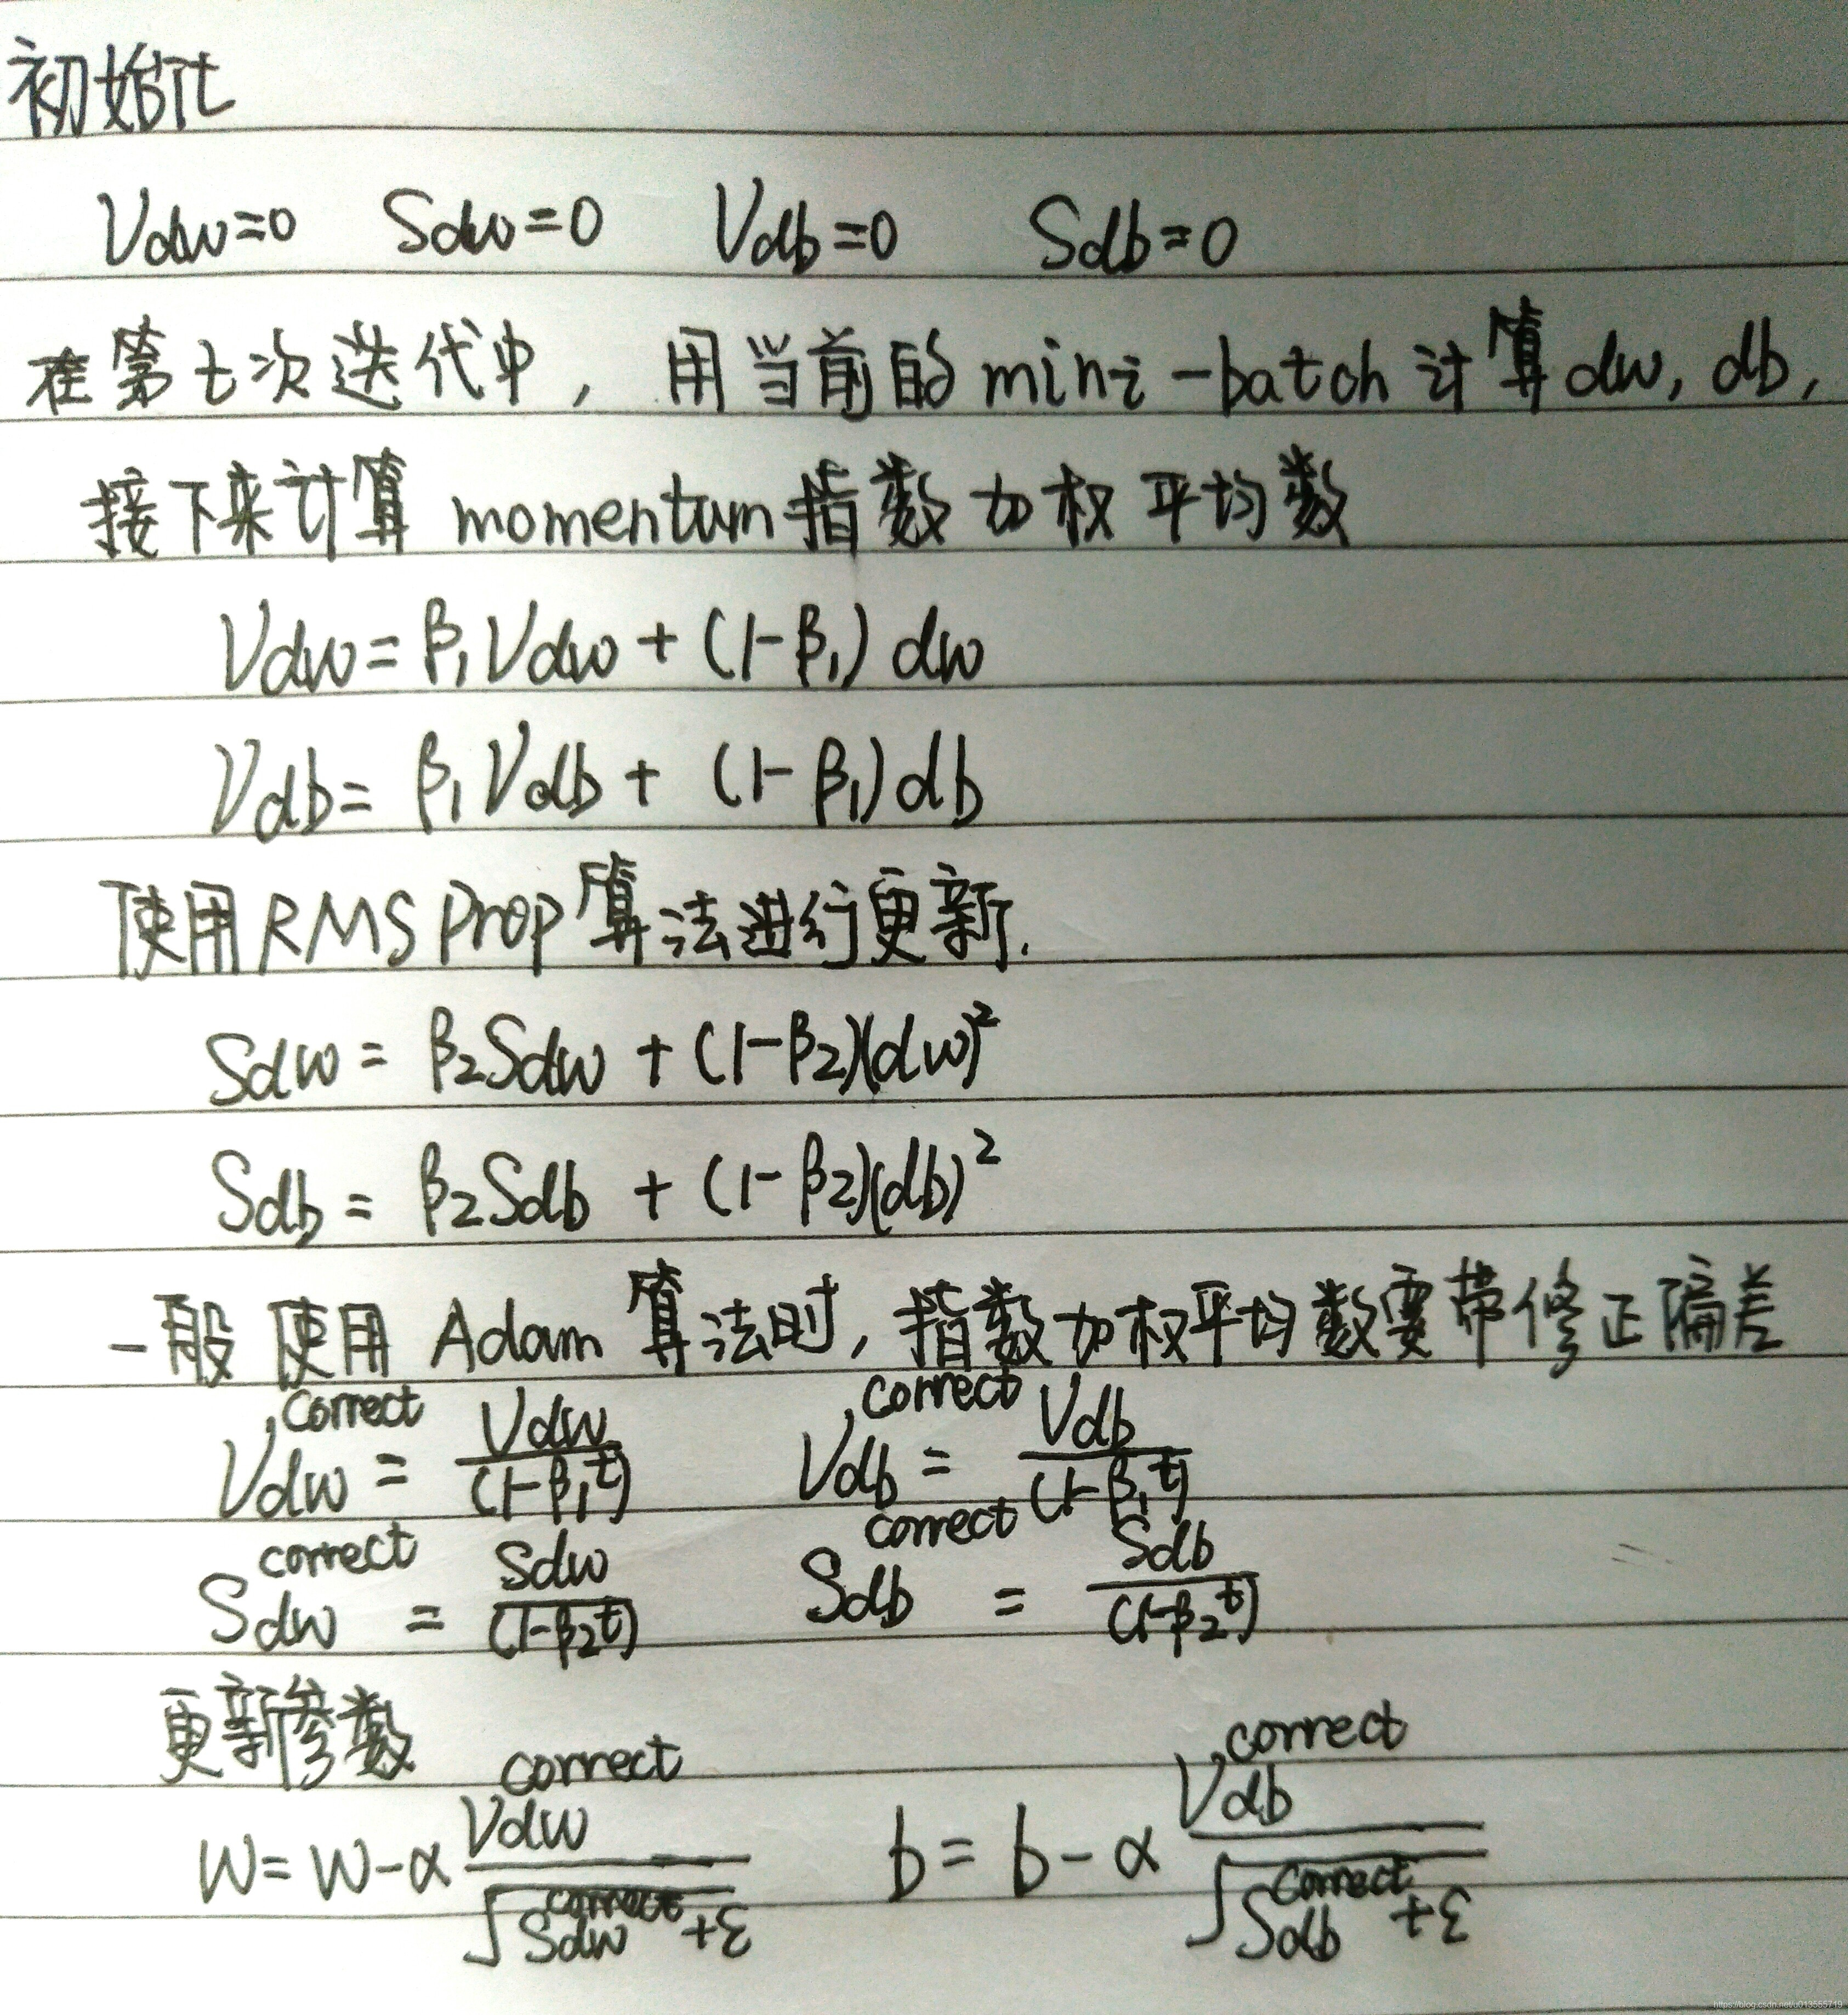 初始化
Vdw=0 Sdw=0 Vdb=0 Sdb=0
在第t次迭代中，用当前的mini-batch计算dw, db,
接下来计算momentum指数加权平均数
Vdw=β₁Vdw+(1-β₁)dw
Vdb=β₁Vdb+(1-β₁)db
使用RMS Prop算法进行更新.
Sdw=β₂Sdw+(1-β₂)(dw)²
Sdb=β₂Sdb+(1-β₂)(db)²
一般使用Adam算法时，指数加权平均数要带修正偏差
Vdw^correct = Vdw/(1-β₁^t) Vdb^correct = Vdb/(1-β₁^t)
Sdw^correct = Sdw/(1-β₂^t) Sdb^correct = Sdb/(1-β₂^t)
更新参数
W=W-α Vdw^correct/√(Sdw^correct+ε) b=b-α Vdb^correct/√(Sdb^correct+ε)